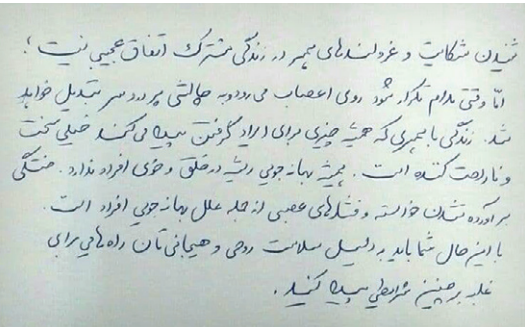 شنیدن شکایت و غرولندهای همسر در زندگی مشترک اتفاق عجیبی نیست؛
امّا وقتی مدام تکرار شود روی اعصاب می‌رود و به چالشی پر دردسر تبدیل خواهد
شد. زندگی با همسری که همیشه چیزی برای ایراد گرفتن پیدا می‌کند خیلی سخت
و ناراحت کننده است. همیشه بهانه جویی ریشه در خلق و خوی افراد ندارد. خستگی
برآورده نشدن خواسته و فشارهای عصبی از جمله علل بهانه جویی افراد است.
با این حال شما باید به دلیل سلامت روحی و هیجانی تان راه هایی برای
غلبه بر چنین شرایطی پیدا کنید.